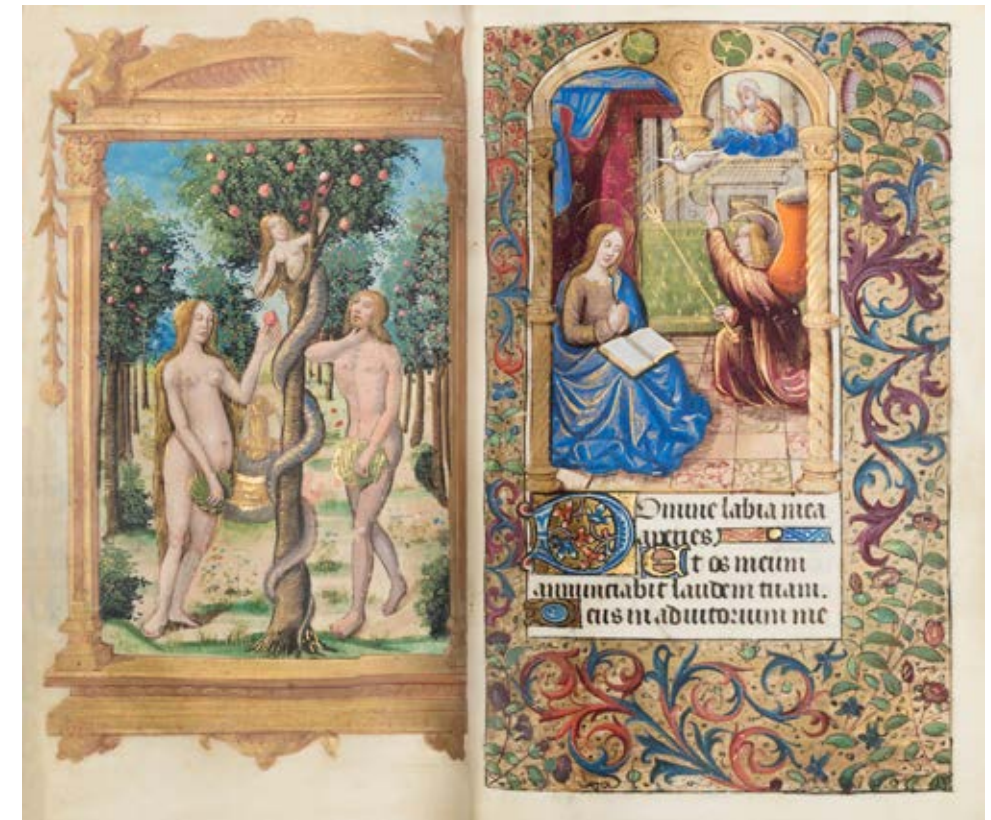 Domine labia mea
aperies)
Et os meum
annunciabit laudem tuam.
Deus in adiutorium me